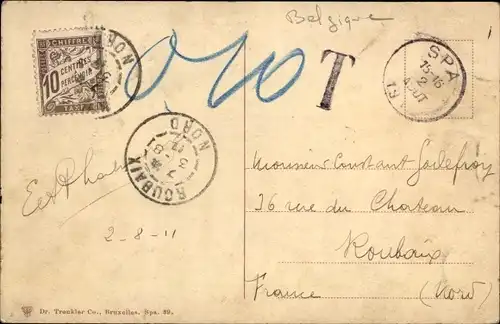 Belgique
CHIFFRE
10
CENTIMES
A
PERCEVOIR
NORD
0,10
T
SPA
15-16
2
AOUT
19
ROUBAIX
NORD
Monsieur Constant Godefroy
36 rue du Chateau
Roubaix
France (Nord)
2-8-11
Dr. Trenkler Co., Bruxelles. Spa. 89.